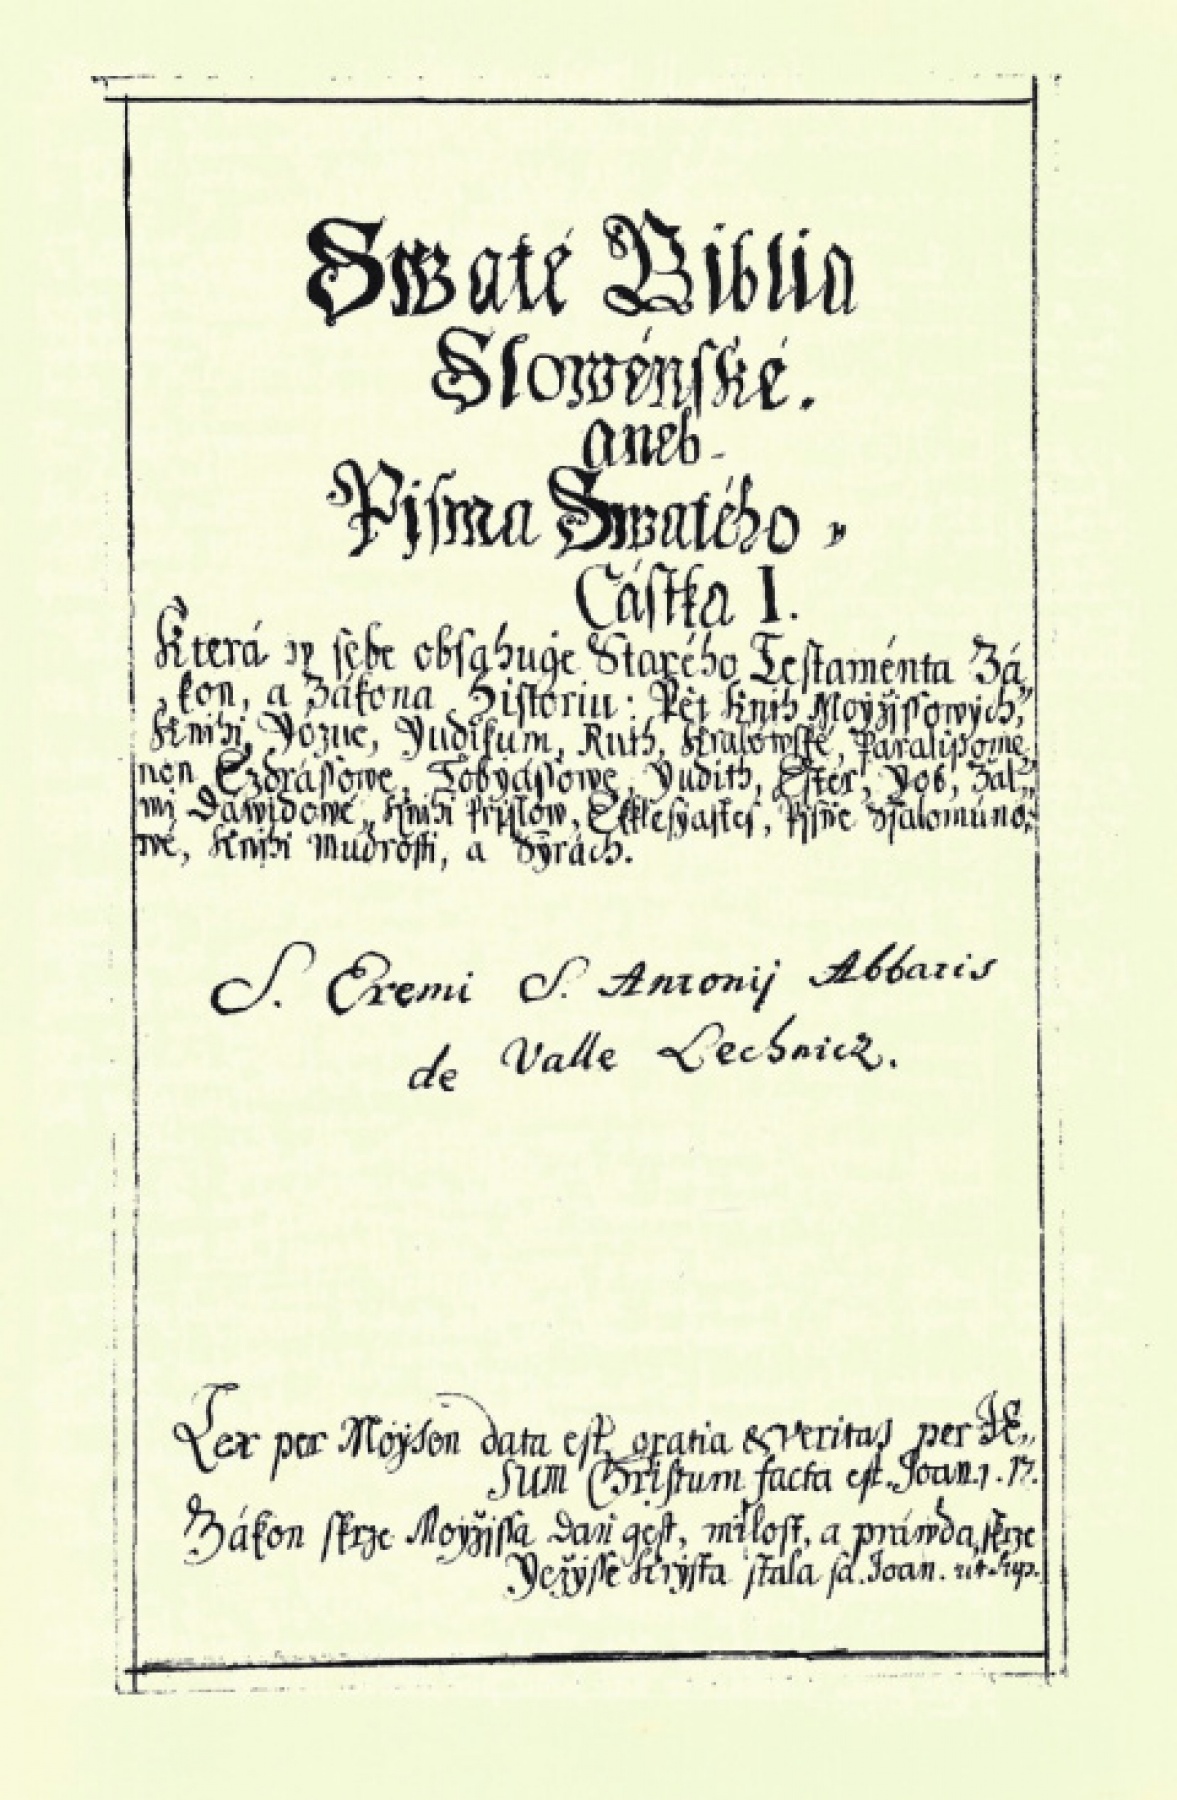 Swaté Biblia
Slowénské.
aneb
Pisma Swatého,
Částka I.
Která w sebe obsahuge Starého Testaménta Zá„
kon, a Zákona Historiu: Pět Knih Moyžissowých,
Knihi, Yozue, Yudikum, Ruth, Kralowské, Paralipome„
non Ezdrássowe, Tobyássowe, Yudith, Ester, Yob, Žal„
mi Dawidowé, Knihi Přislow, Ekklesyastes, Pisně Ssalomúno„
wé, Knihi Mudrosti, a Syrách.
S. Eremi S. Antonij Abbatis
de Valle Lechnicz.
Lex per Moÿsen data est, gratia & veritas per JE„
SUM Christum facta est. Joan. 1. 17.
Zákon skrze Moyžissa dan gest, milost, a práwda skrze
Yežysse Krysta stala sa. Joan.